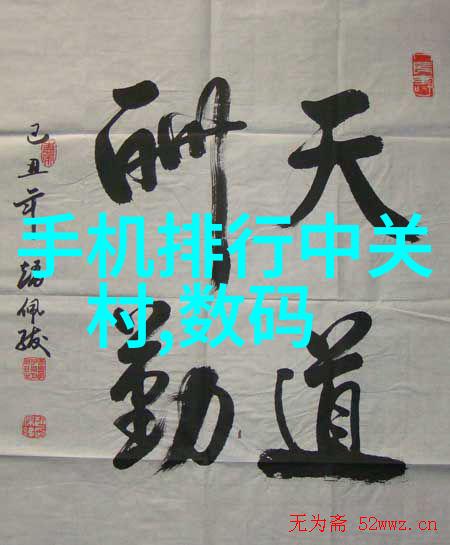 天道
酬勤
己丑年
手机排行中关
村,数码
无为斋 52wwz.cn